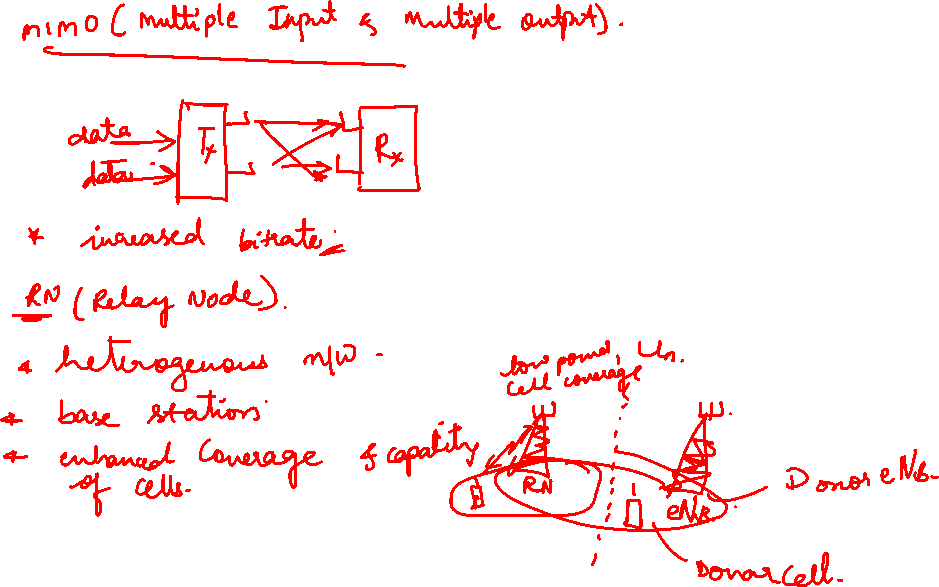 MIMO ( Multiple Input & Multiple output).
data
data
Tx
Rx
* increased bitrate.
RN (Relay Node).
* heterogenous n/w -
* base stations
* enhanced Coverage & capacity
of cells.
low power, Un.
cell coverage
RN
eNB
Donor eNB.
Donar Cell.